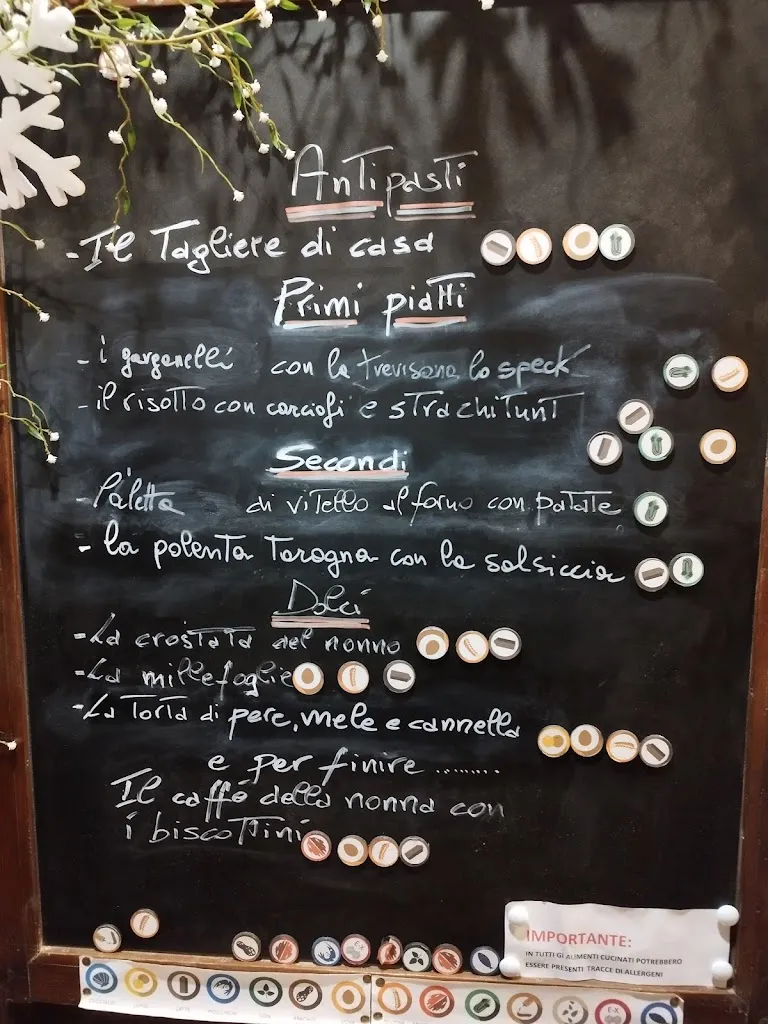 Antipasti
- Il Tagliere di casa
Primi piatti
- i garganelli con la trevisana lo speck
- il risotto con carciofi e STRACHITUNT
Secondi
- Paletta di vitello al forno con patate
- la polenta Taragna con la salsiccia
Dolci
- La crostata del nonno
- La millefoglie
- La Torta di pere, mele e cannella
e per finire ........
Il caffé della nonna con
i biscottini
IMPORTANTE:
IN TUTTI GLI ALIMENTI CUCINATI POTREBBERO
ESSERE PRESENTI TRACCE DI ALLERGENI